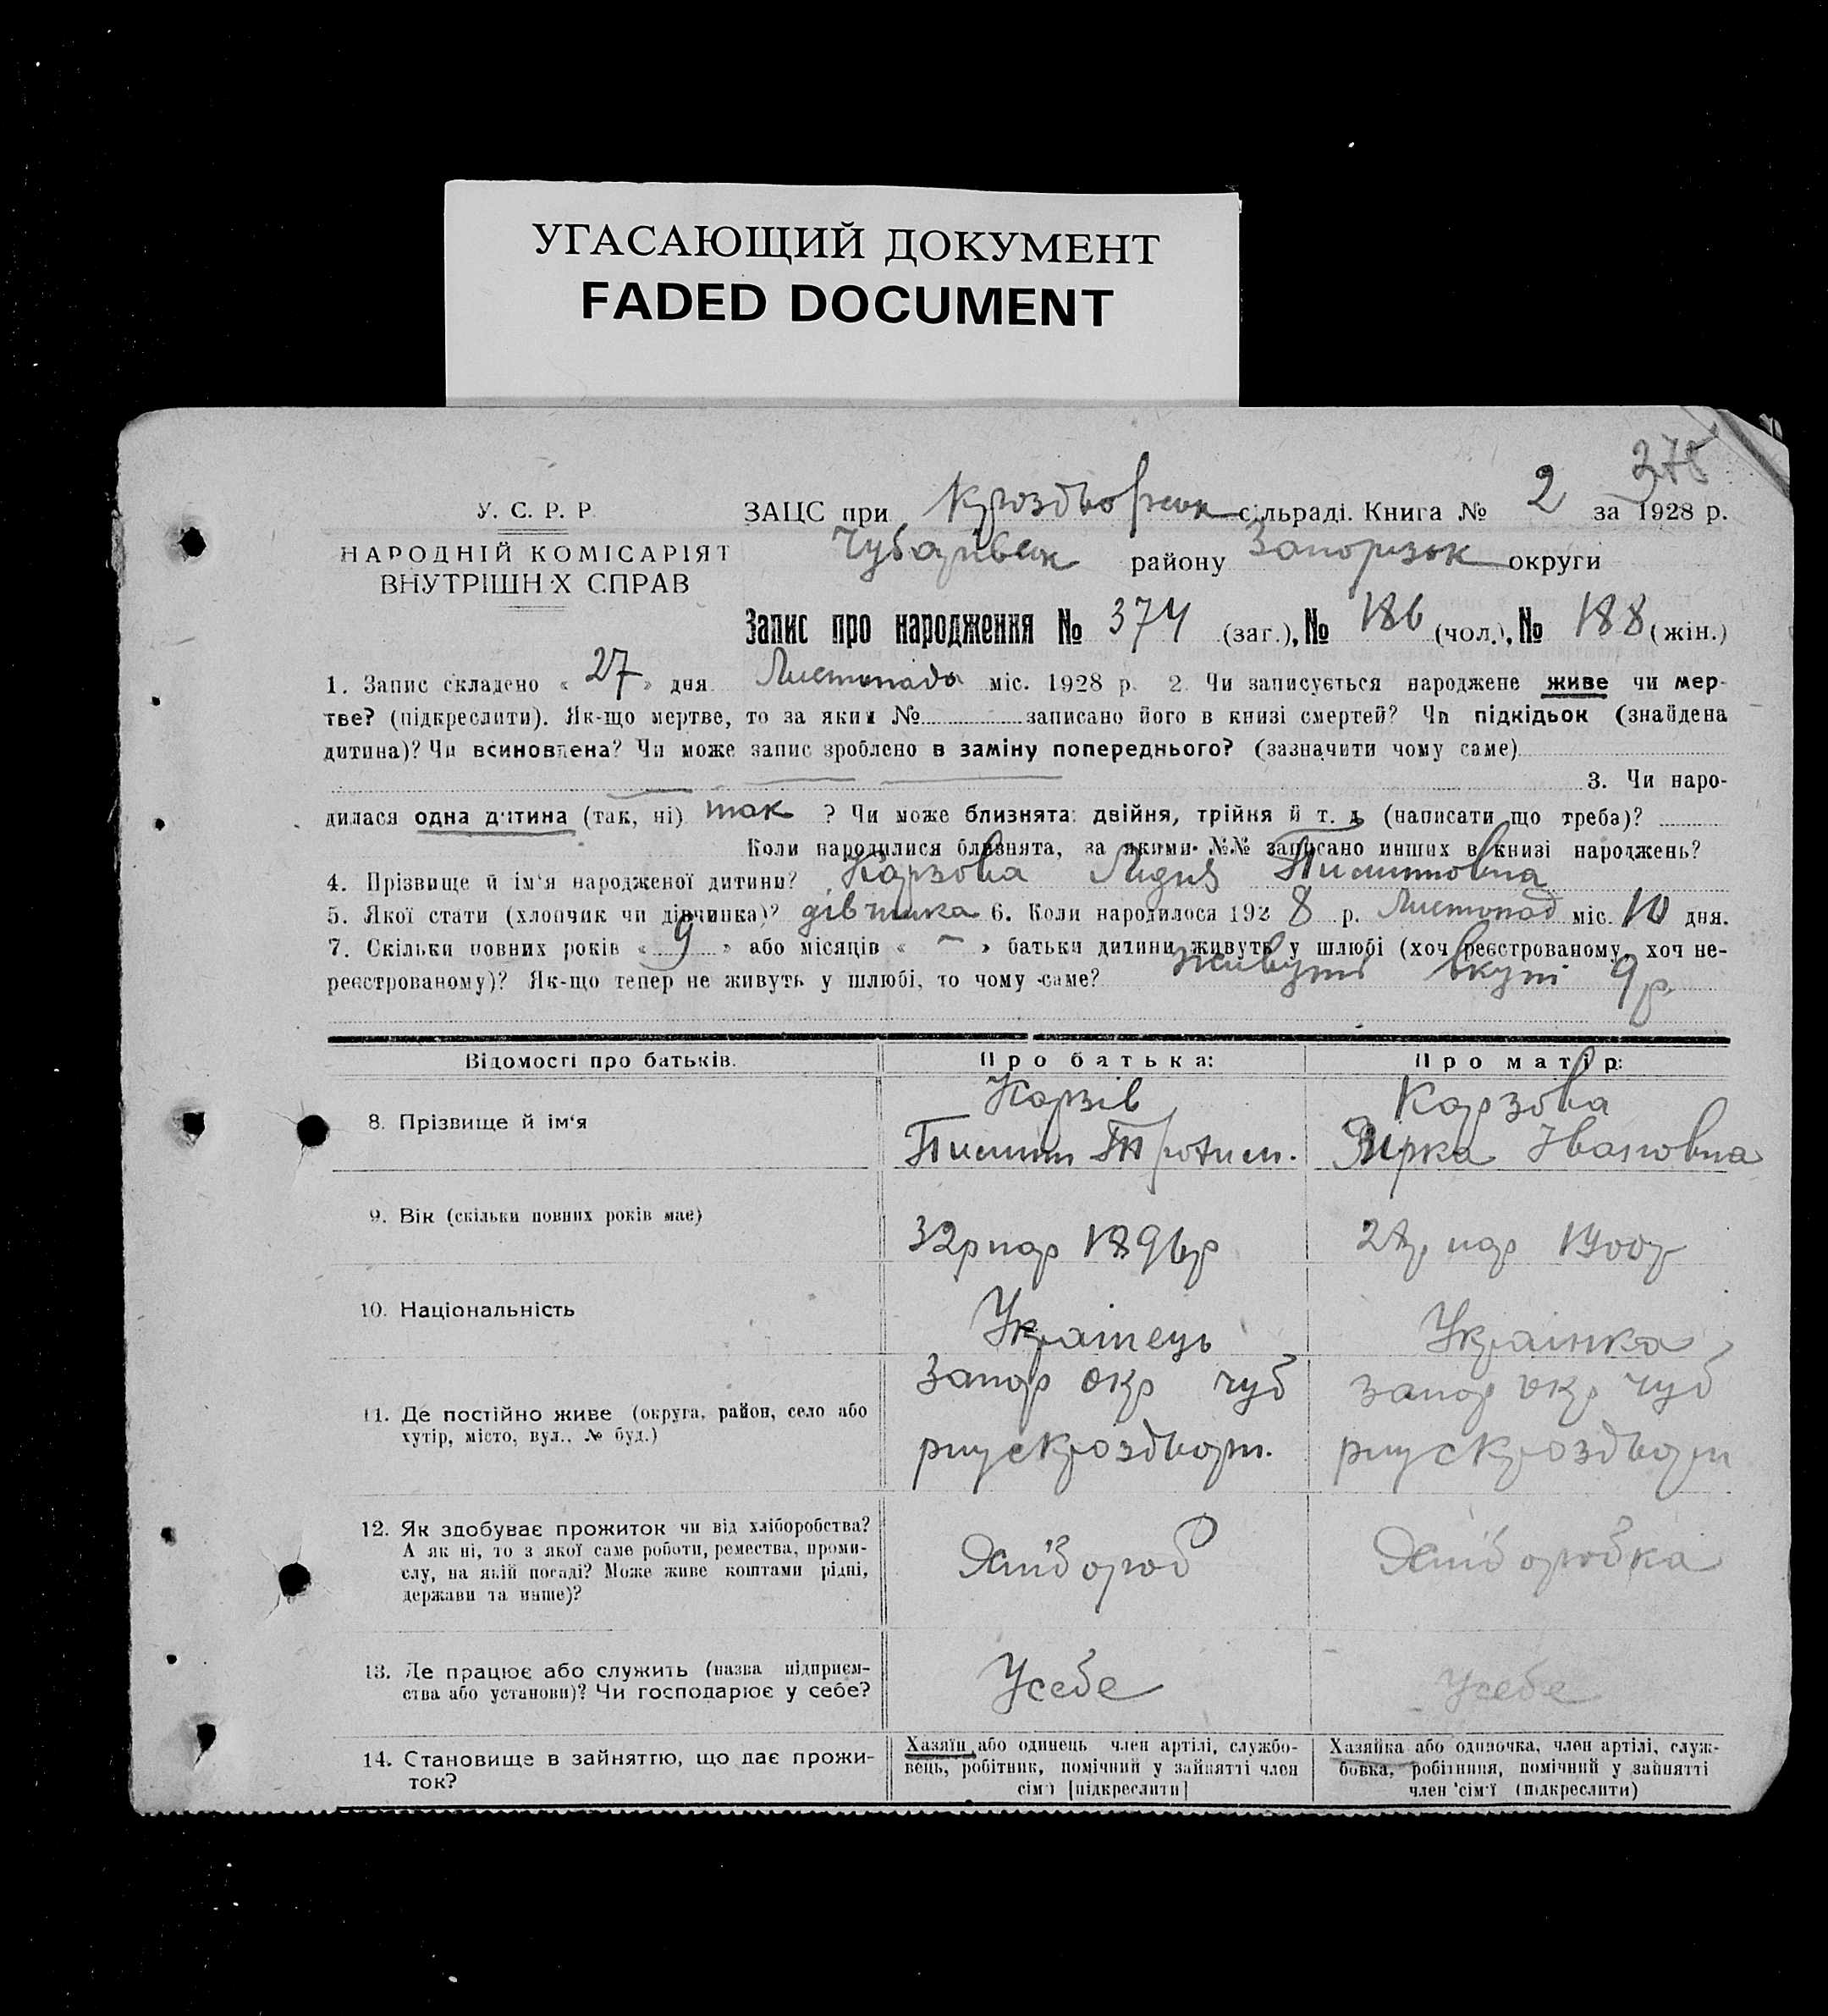 УГАСАЮЩИЙ ДОКУМЕНТ
FADED DOCUMENT
375
У. С. Р. Р.
НАРОДНІЙ КОМІСАРІЯТ
ВНУТРІШНІХ СПРАВ
ЗАЦС при сільраді. Книга № 2 за 1928 р.
району Запорізок округи
Запис про народження № 374 (заг.), № 186 (чол.), № 188 (жін.)
1. Запис складено « 27 » дня Листопада міс. 1928 р. 2. Чи записується народжене живе чи мер-
тве? (підкреслити). Як-що мертве, то за яким № записано його в книзі смертей? Чи підкідьок (знайдена
дитина)? Чи всиновлена? Чи може запис зроблено в заміну попереднього? (зазначити чому саме)
3. Чи наро-
дилася одна дитина (так, ні) так ? Чи може близнята: двійня, трійня й т. д. (написати що треба)?
Коли народилися близнята, за якими №№ записано инших в книзі народжень?
4. Прізвище й ім'я народженої дитини? Карзова
5. Якої стати (хлопчик чи дівчинка)? дівчинка 6. Коли народилося 1928 р. Листопад міс. 10 дня.
7. Скільки повних років « 9 » або місяців « — » батьки дитини живуть у шлюбі (хоч реєстрованому, хоч не-
реєстрованому)? Як-що тепер не живуть у шлюбі, то чому саме? живуть вкупі 9 р.
Відомості про батьків. Про батька: Про матір:
Карзів Карзова
8. Прізвище й ім'я
Івановна
9. Вік (скільки повних років має)
32р нар 1896р 28р нар 1900р
10. Національність
Українець Українка
Запор окр чуб запор окр чуб
11. Де постійно живе (округа, район, село або
хутір, місто, вул., № буд.)
12. Як здобуває прожиток чи від хліборобства?
А як ні, то з якої саме роботи, ремества, проми-
слу, на якій посаді? Може живе коштами рідні,
держави та инше)?
13. Де працює або служить (назва підприєм-
ства або установи)? Чи господарює у себе?
Усебе Усебе
14. Становище в зайняттю, що дає прожи-
ток?
Хазяїн або одинець член артілі, службо-
вець, робітник, помічний у зайнятті член
сім'ї [підкреслити]
Хазяйка або одиночка, член артілі, служ-
бовка, робітниця, помічний у зайнятті
член сім'ї (підкреслити)